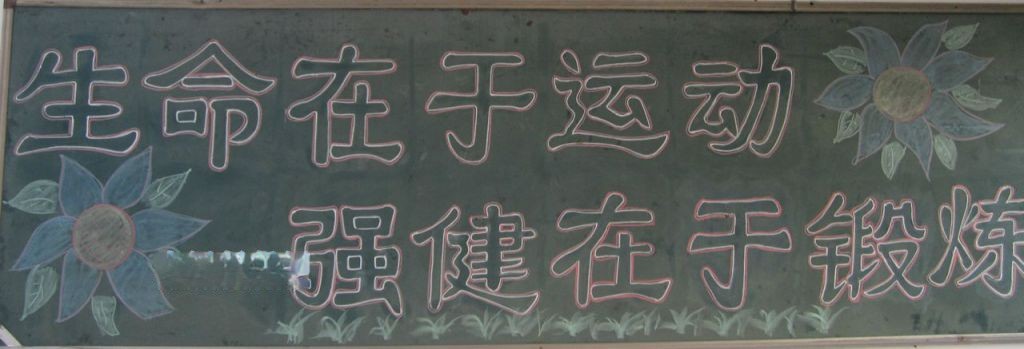 生命在于运动
强健在于锻炼